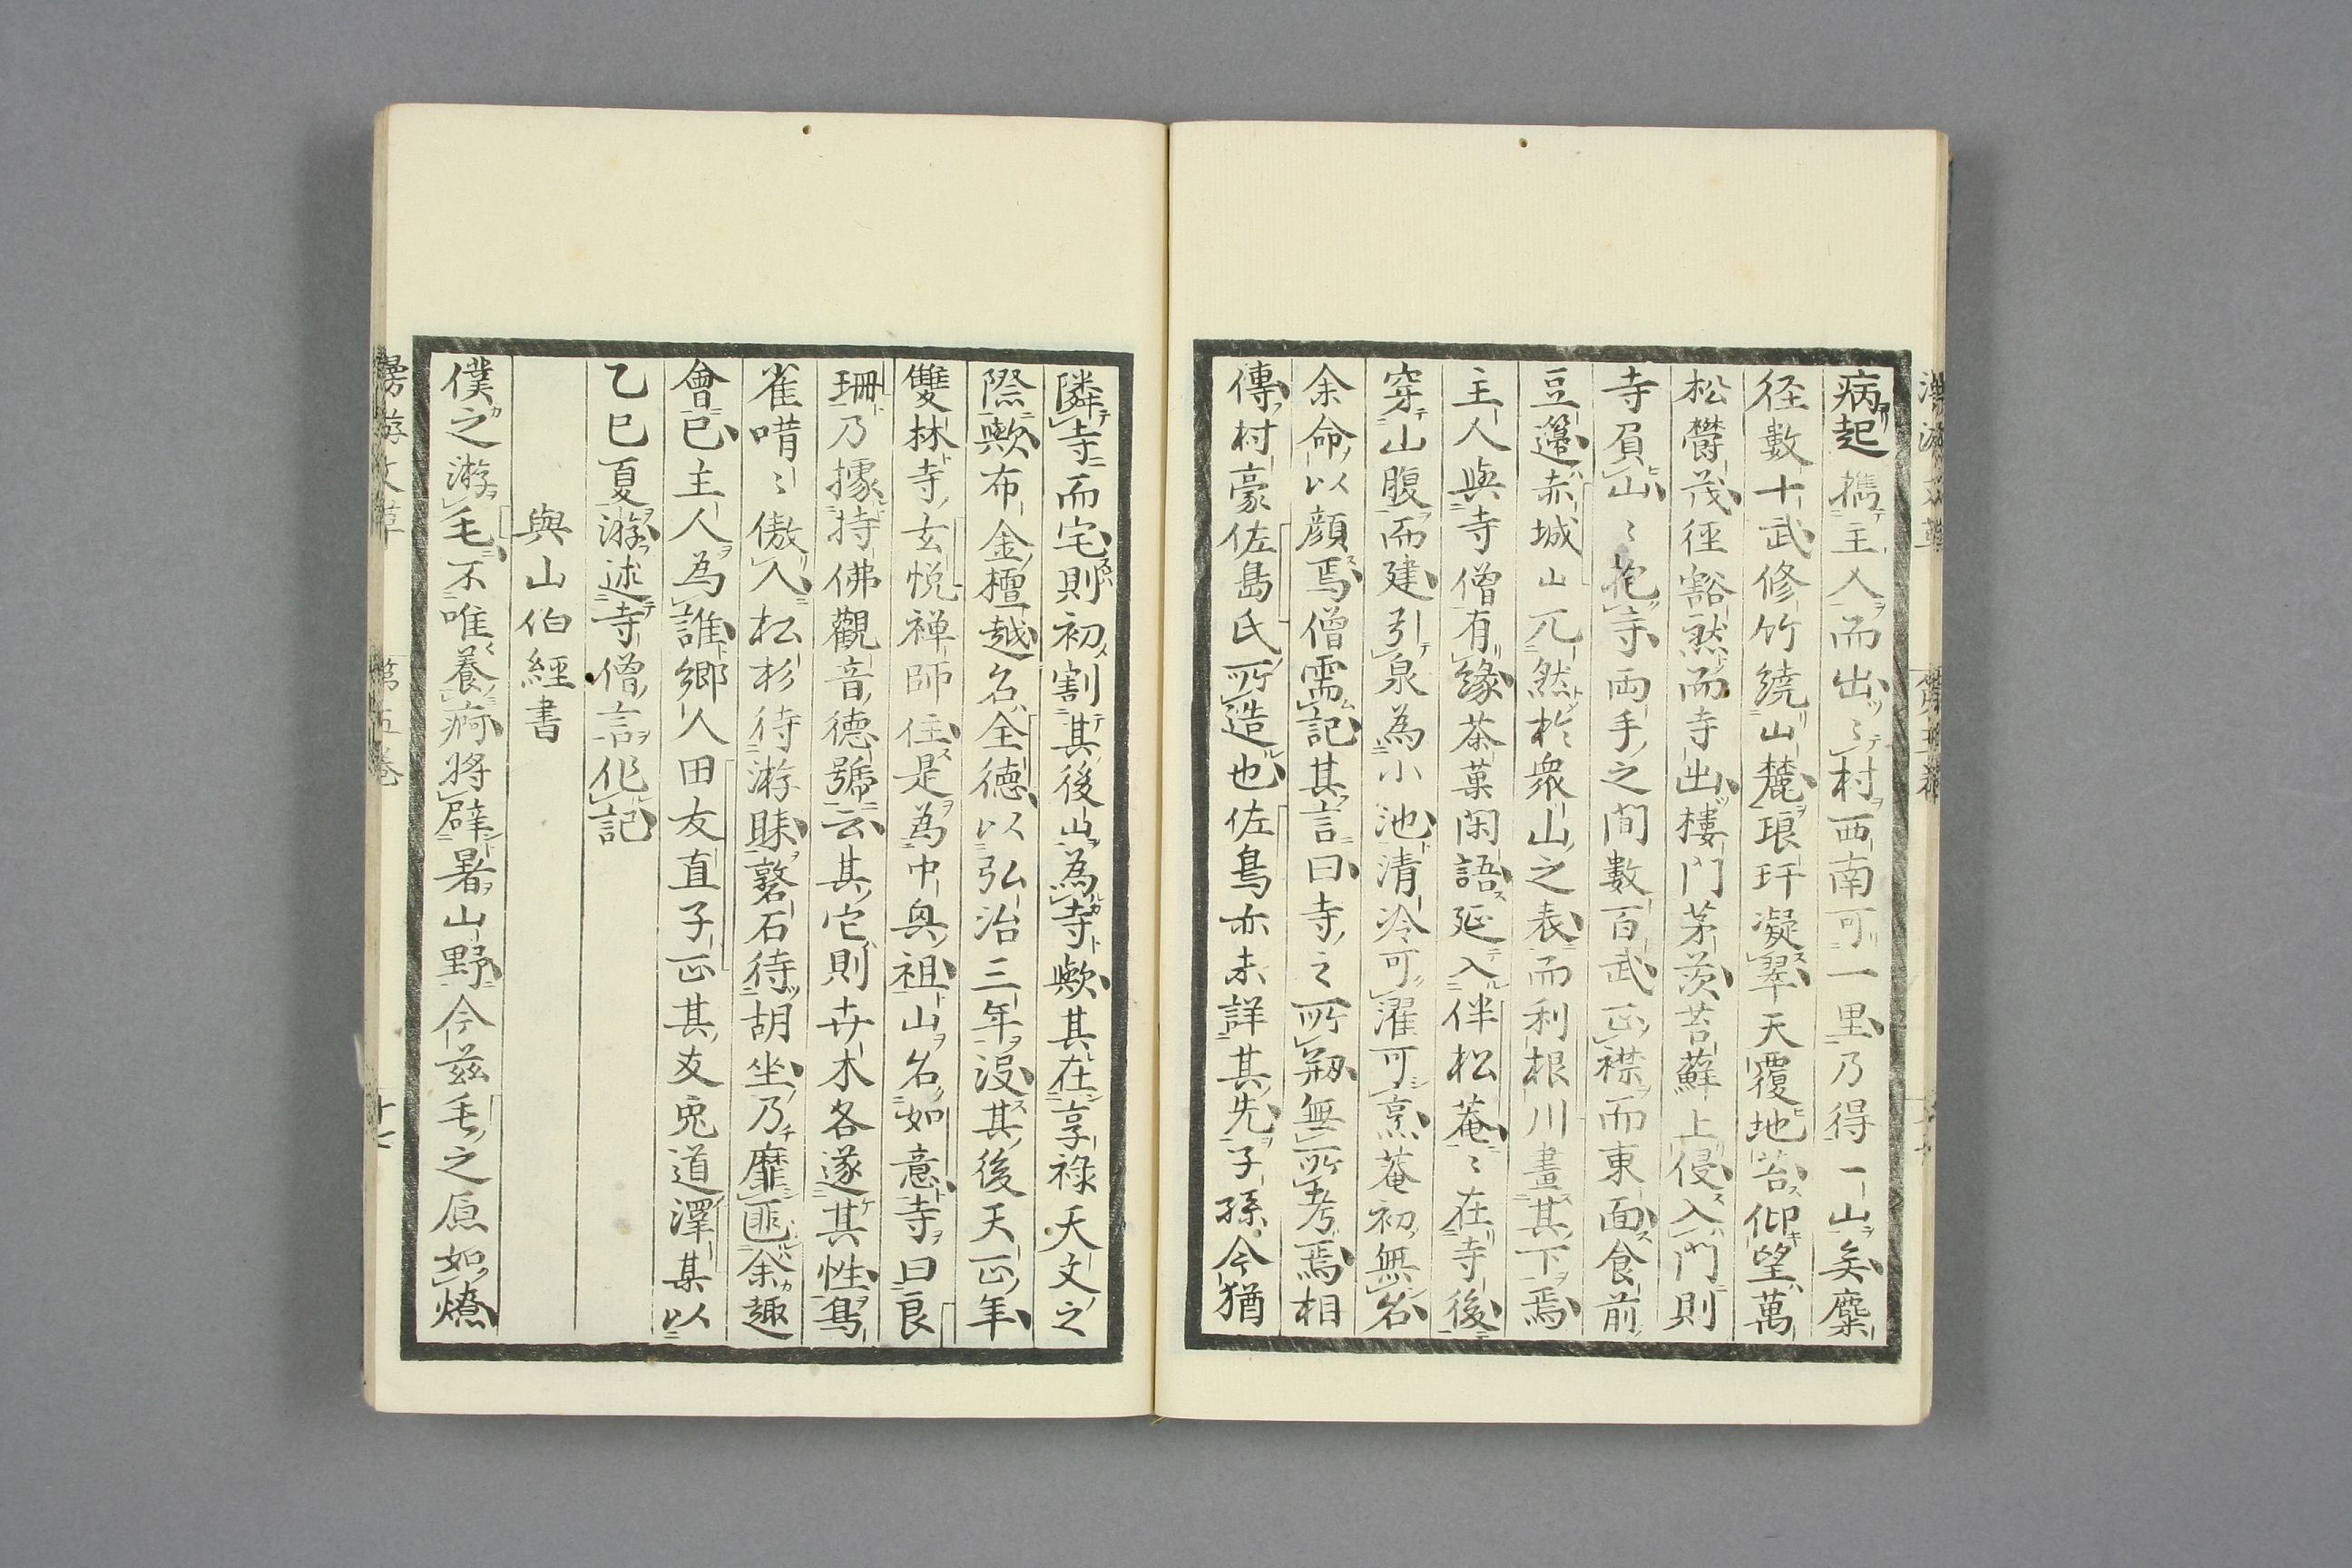 病起携主人而出〻村西南可一里乃得一山矣麋
径數十武修竹繞山麓琅玕凝翠天覆地苔仰望萬
松欝茂徑豁然而寺出樓門茅茨苔蘚上侵入門則
寺負山〻抱寺両手之間數百武正襟而東面食前
豆邉赤城山兀然於衆山之表而利根川畫其下焉
主人與寺僧有縁茶菓閑語延入伴松菴〻在寺後
穿山腹而建引泉為小池清冷可濯可烹菴初無名
余命以顔焉僧需記其言曰寺之所剏無所考焉相
傳村豪佐島氏所造也佐鳥亦未詳其先子孫今猶
隣寺而宅則初割其後山為寺歟其在享禄天文之
際歟布金檀越名全德以弘治三年没其後天正年
雙林寺玄悦禅師住是為中興祖山名如意寺曰良
珊乃據持佛觀音德號云其它則卉木各遂其性鳥
雀唶〻傲人松杉待游賕磬石待胡坐乃靡匪余趣
會已主人為誰郷人田友直子正其友兎道澤某以
乙巳夏游述寺僧言作記
與山伯經書
僕之游毛不唯養痾将辟暑山野今兹毛之原如燎
漫游文草
第五巻
十七